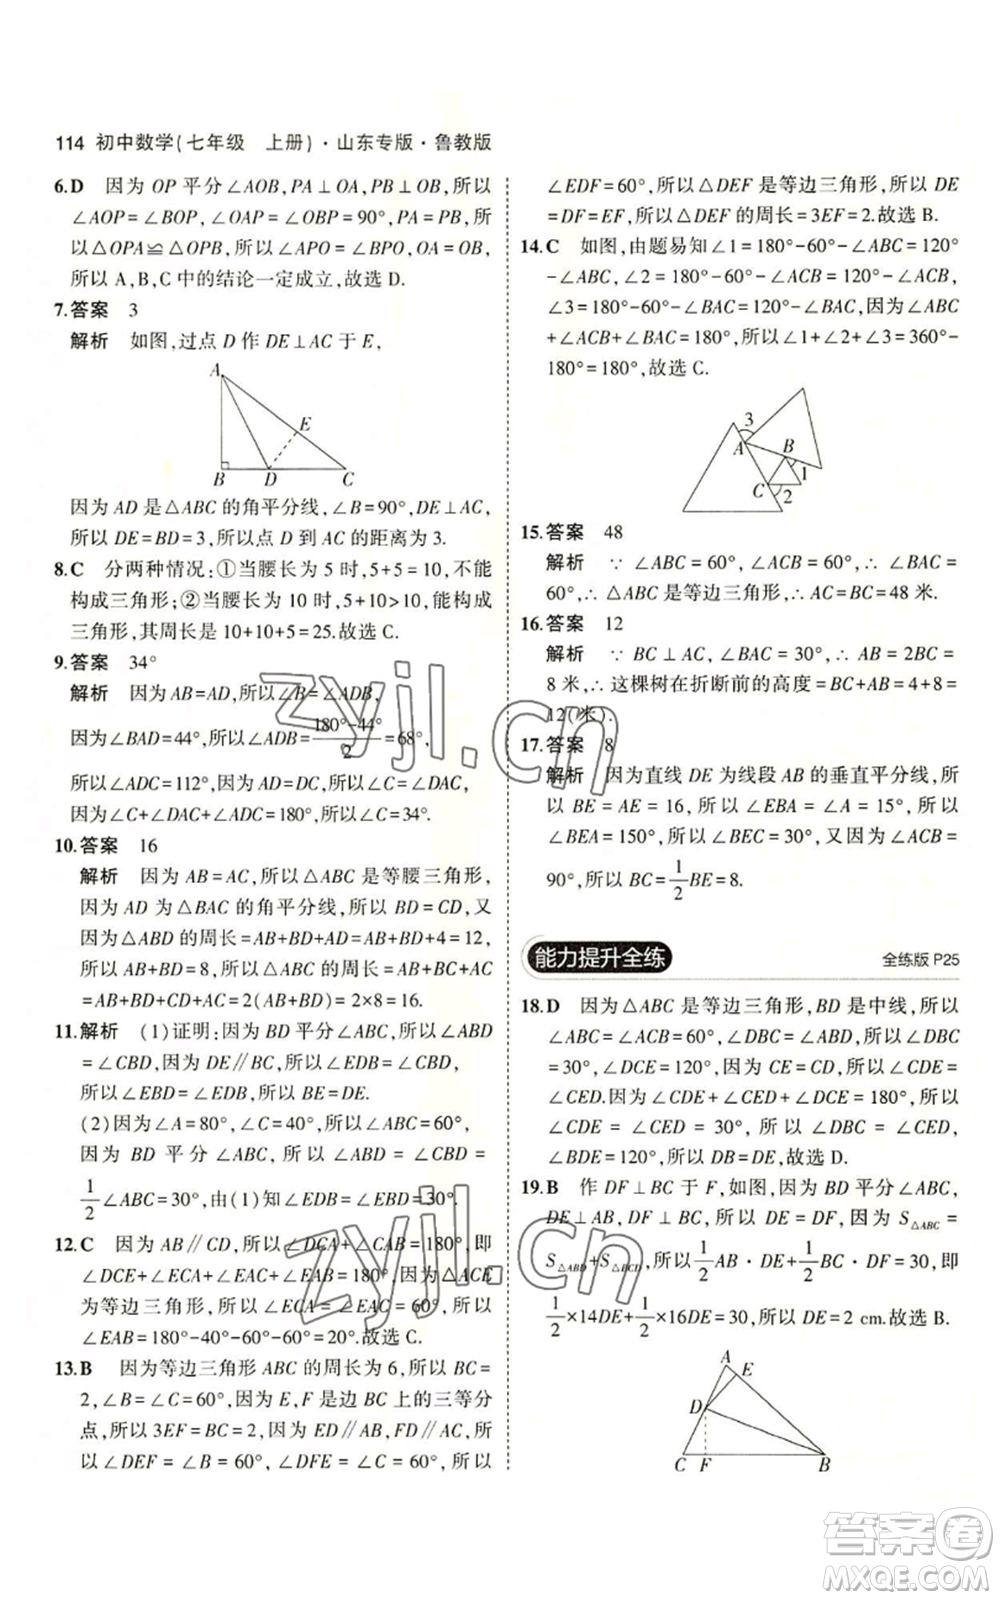 114 初中数学(七年级 上册)·山东专版·鲁教版
6.D 因为 OP 平分∠AOB,PA⊥OA,PB⊥OB,所以
∠AOP=∠BOP,∠OAP=∠OBP=90°,PA=PB,所
以△OPA≌△OPB,所以∠APO=∠BPO,OA=OB,
所以 A,B,C 中的结论一定成立,故选 D.
7.答案 3
解析 如图,过点 D 作 DE⊥AC 于 E,
A
E
B D C
因为 AD 是△ABC 的角平分线,∠B=90°,DE⊥AC,
所以 DE=BD=3,所以点 D 到 AC 的距离为 3.
8.C 分两种情况:①当腰长为 5 时,5+5=10,不能
构成三角形;②当腰长为 10 时,5+10>10,能构成
三角形,其周长为 10+10+5=25.故选 C.
9.答案 34°
解析 因为 AB=AD,所以∠B=∠ADB,
因为∠BAD=44°,所以∠ADB=\frac{180°-44°}{2}=68°,
所以∠ADC=112°,因为 AD=DC,所以∠C=∠DAC,
因为∠C+∠DAC+∠ADC=180°,所以∠C=34°.
10.答案 16
解析 因为 AB=AC,所以△ABC 是等腰三角形,
因为 AD 为△BAC 的角平分线,所以 BD=CD,又
因为△ABD 的周长=AB+BD+AD=AB+BD+4=12,
所以 AB+BD=8,
所以△ABC 的周长=AB+BC+AC=2(AB+BD)=2×8=16.
11.解析 (1)证明:因为 BD 平分∠ABC,所以∠ABD
=∠CBD,因为 DE∥BC,所以∠EDB=∠CBD,
所以∠EBD=∠EDB,所以 BE=DE.
(2)因为∠A=80°,∠C=40°,所以∠ABC=60°,
因为 BD 平分∠ABC,所以∠ABD=∠CBD=
\frac{1}{2}∠ABC=30°,由(1)知∠EDB=∠EBD=30°.
12.C 因为 AB∥CD,所以∠DCA+∠CAB=180°,即
∠DCE+∠ECA+∠EAC+∠EAB=180°,因为△ACE
为等边三角形,所以∠ECA=∠EAC=60°,所以
∠EAB=180°-40°-60°-60°=20°.故选 C.
13.B 因为等边三角形 ABC 的周长为 6,所以 BC=
2,∠B=∠C=60°,因为 E,F 是边 BC 上的三等分
点,所以 3EF=BC=2,因为 ED∥AB,FD∥AC,所
以∠DEF=∠B=60°,∠DFE=∠C=60°,所以
∠EDF=60°,所以△DEF 是等边三角形,所以 DE
=DF=EF,所以△DEF 的周长=3EF=2.故选 B.
14.C 如图,由题易知∠1=180°-60°-∠ABC=120°
-∠ABC,∠2=180°-60°-∠ACB=120°-∠ACB,
∠3=180°-60°-∠BAC=120°-∠BAC,因为∠ABC
+∠ACB+∠BAC=180°,所以∠1+∠2+∠3=360°-
180°=180°,故选 C.
3
A B
1
C
2
15.答案 48
解析 ∵∠ABC=60°,∠ACB=60°,∴∠BAC=
60°,∴△ABC 是等边三角形,∴BC=AC=48 米.
16.答案 12
解析 ∵BC⊥AC,∠BAC=30°,∴AB=2BC=
8 米,∴这棵树在折断前的高度=BC+AB=4+8=
12(米).
17.答案 8
解析 因为直线 DE 为线段 AB 的垂直平分线,所
以 BE=AE=16,所以∠EBA=∠A=15°,所以
∠BEA=150°,所以∠BEC=30°,又因为∠ACB=
90°,所以 BC=\frac{1}{2}BE=8.
能力提升全练 全练版 P25
18.D 因为△ABC 是等边三角形,BD 是中线,所以
∠ABC=∠ACB=60°,∠DBC=∠ABD=∠DBC
=30°,∠DCE=120°,因为 CE=CD,所以∠CDE=
∠CED.因为∠CDE+∠CED+∠DCE=180°,所以
∠CDE=∠CED=30°,所以∠DBC=∠CED,
∠BDE=120°,所以 DB=DE.故选 D.
19.B 作 DF⊥BC 于 F,如图,因为 BD 平分∠ABC,
DE⊥AB,DF⊥BC,所以 DE=DF,因为 S△ABC=
S△ABD+S△BCD,所以\frac{1}{2}AB·DE+\frac{1}{2}BC·DF=30,即
\frac{1}{2}×14DE+\frac{1}{2}×16DE=30,所以 DE=2 cm.故选 B.
A
E
D
C F B
zyjl.cn
zyjl.cn
答案卷
MXQE.COM